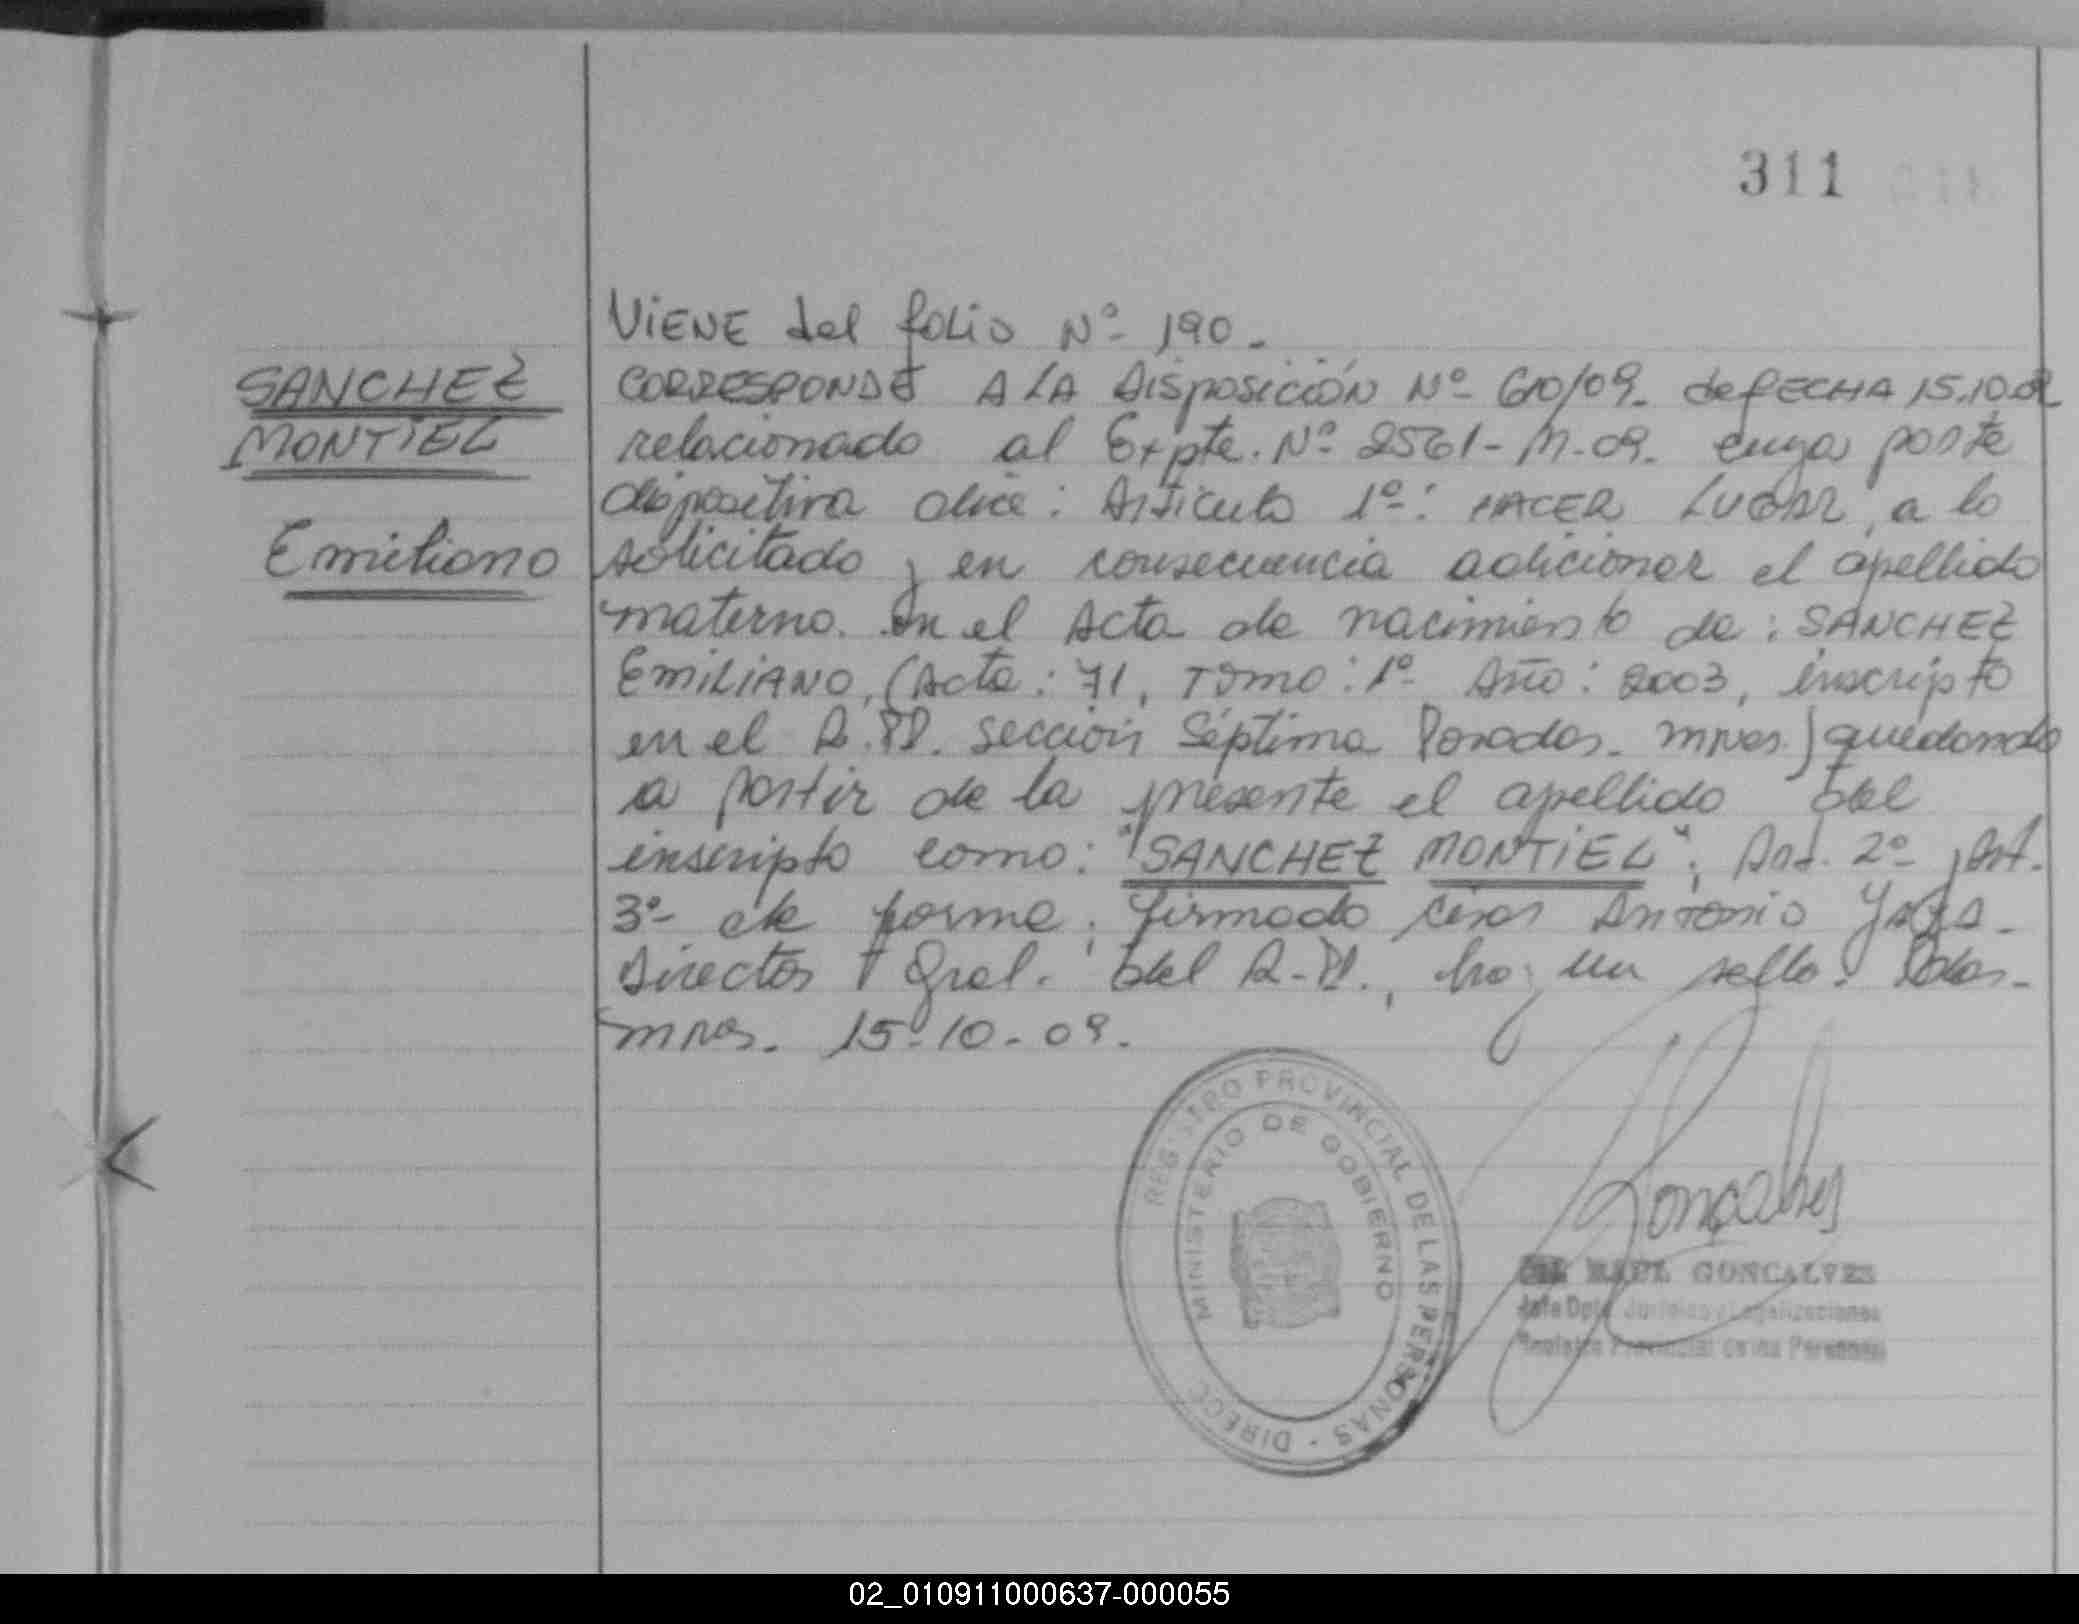 311
VIENE del folio Nº 190.
SANCHEZ
MONTIEL
Emiliano
CORRESPONDE A LA Disposición Nº 610/09. de FECHA 15.10.09
relacionado al Expte. Nº 2561-M-09. cuya parte
dispositiva dice: Artículo 1º: HACER LUGAR, a lo
solicitado y en consecuencia adicionar el apellido
materno. en el Acta de nacimiento de: SANCHEZ
EMILIANO, (Acta: 71, Tomo: 1º Año: 2003, inscripto
en el R.PP. sección Séptima Posadas. mnes.) quedando
a partir de la presente el apellido del
inscripto como: "SANCHEZ MONTIEL", Art. 2º, Art.
3º de forma, firmado Antonio
Director Gral. del R.P., hay un sello. Pdas.
mnes. 15-10-09.
REGISTRO PROVINCIAL DE LAS PERSONAS - DIRECC
MINISTERIO DE GOBIERNO
Goncalves
RAUL GONCALVES
Jefe Dpto. Judiciales y Legalizaciones
Registro Provincial de las Personas
02_010911000637-000055